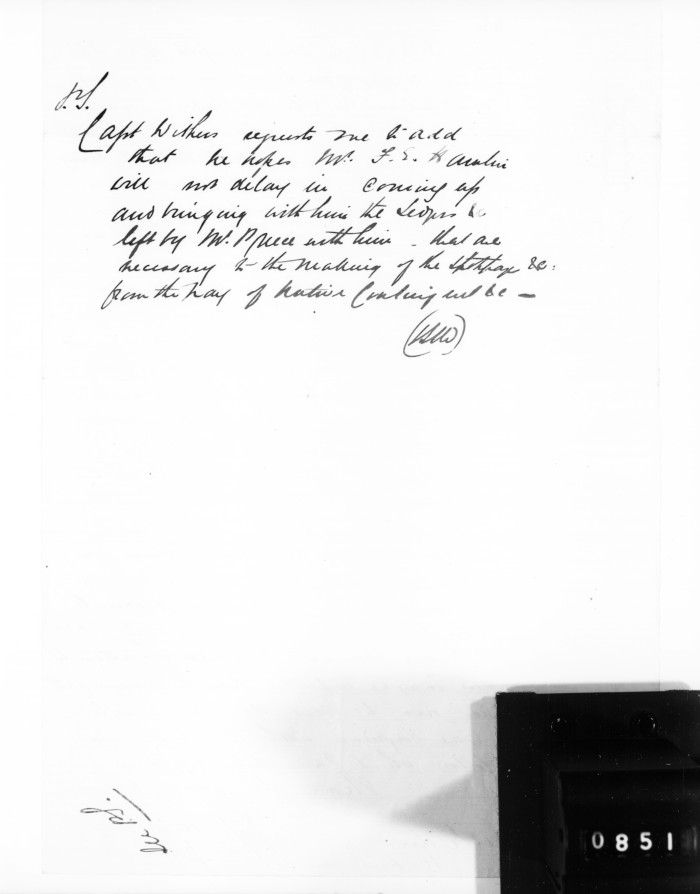 P.S.
Capt Withers requests me to add
that he hopes Mr. F. E. Hamlin
will not delay in coming up
and bringing with him the Ledgers &c
left by Mr. Preece with him - that are
necessary to the making of the Stoppages &c:
from the pay of Native Contingent &c -
0851